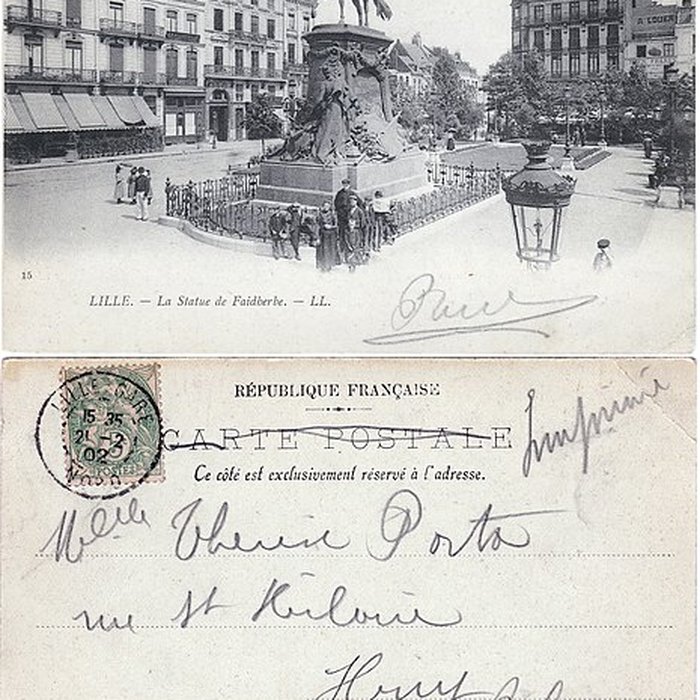 A LOUER
15
LILLE. — La Statue de Faidherbe. — LL.
RÉPUBLIQUE FRANÇAISE
LILLE GARE
15 35
21 -2
02
NORD
POSTES
CARTE POSTALE
Imprimé
Ce côté est exclusivement réservé à l'adresse.
Melle Porta
rue St Hilaire